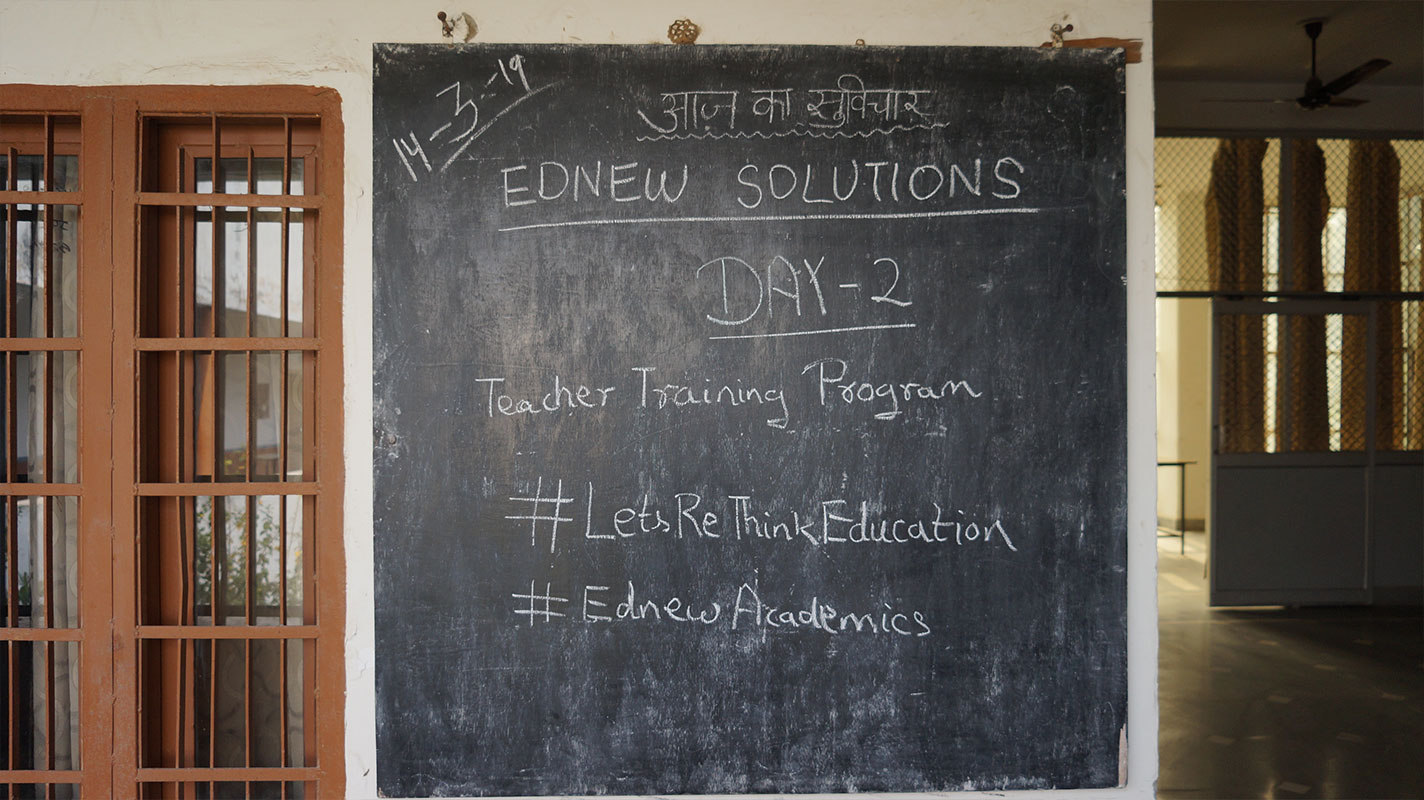 14-3-19
आज का सुविचार
EDNEW SOLUTIONS
DAY-2
Teacher Training Program
#LetsReThinkEducation
#EdnewAcademics